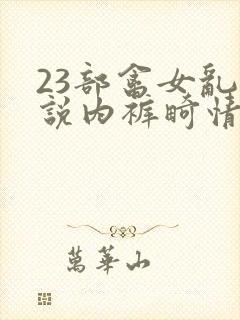 23部畬女亂
說内裤畸情
萬華山